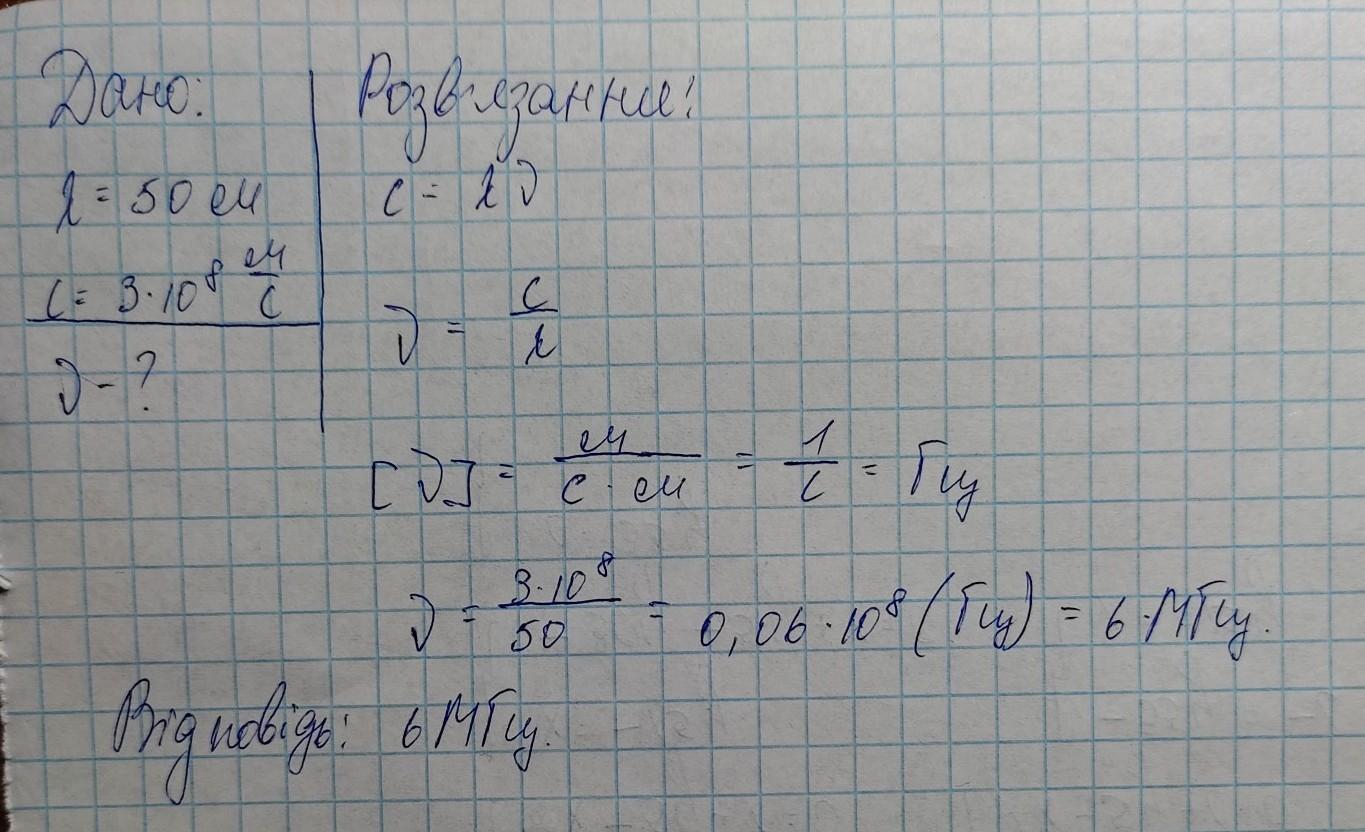 Дано:
λ = 50 м
c = 3·10⁸ м/с
ν - ?
Розв'язання:
c = λν
ν = c/λ
[ν] = м/(с·м) = 1/с = Гц
ν = 3·10⁸/50 = 0,06·10⁸ (Гц) = 6·МГц.
Відповідь: 6 МГц.